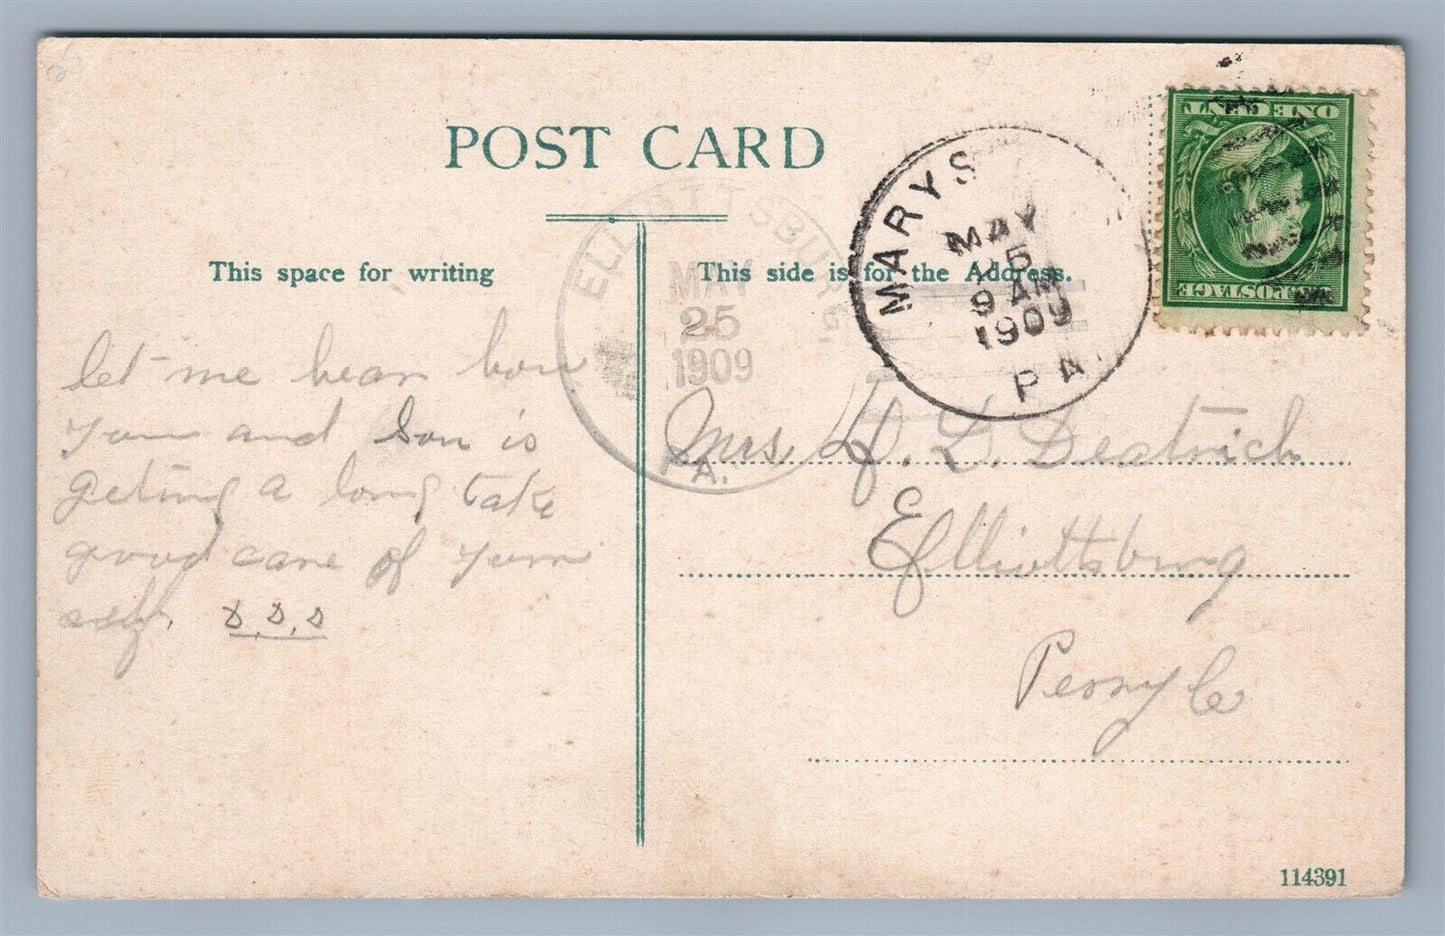 POST CARD
This space for writing
This side is for the Address.
ONE CENT
POSTAGE
MARYS
MAY
25
9 AM
1909
PA
ELLIOTTSBURG
MAY
25
1909
PA.
let me hear how
your and Son is
geting a long take
good care of your
self.
Mrs H. L. Deatrich
Elliottsburg
Perry Co
114391